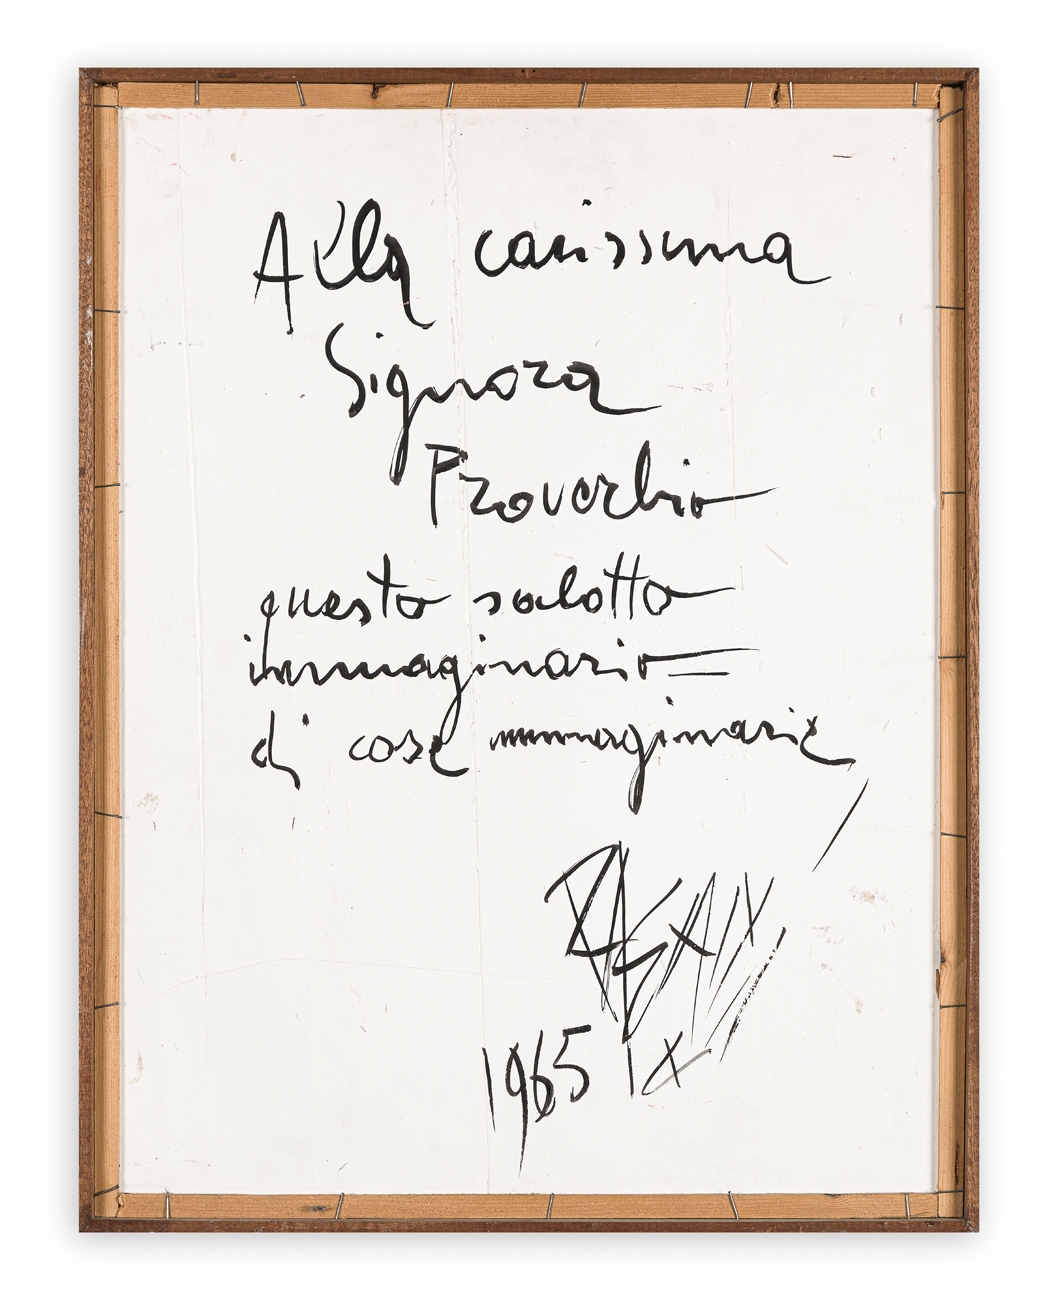 Alla carissima
Signora
Proverbio
questo salotto
immaginario
di cose immaginarie
1965 IX